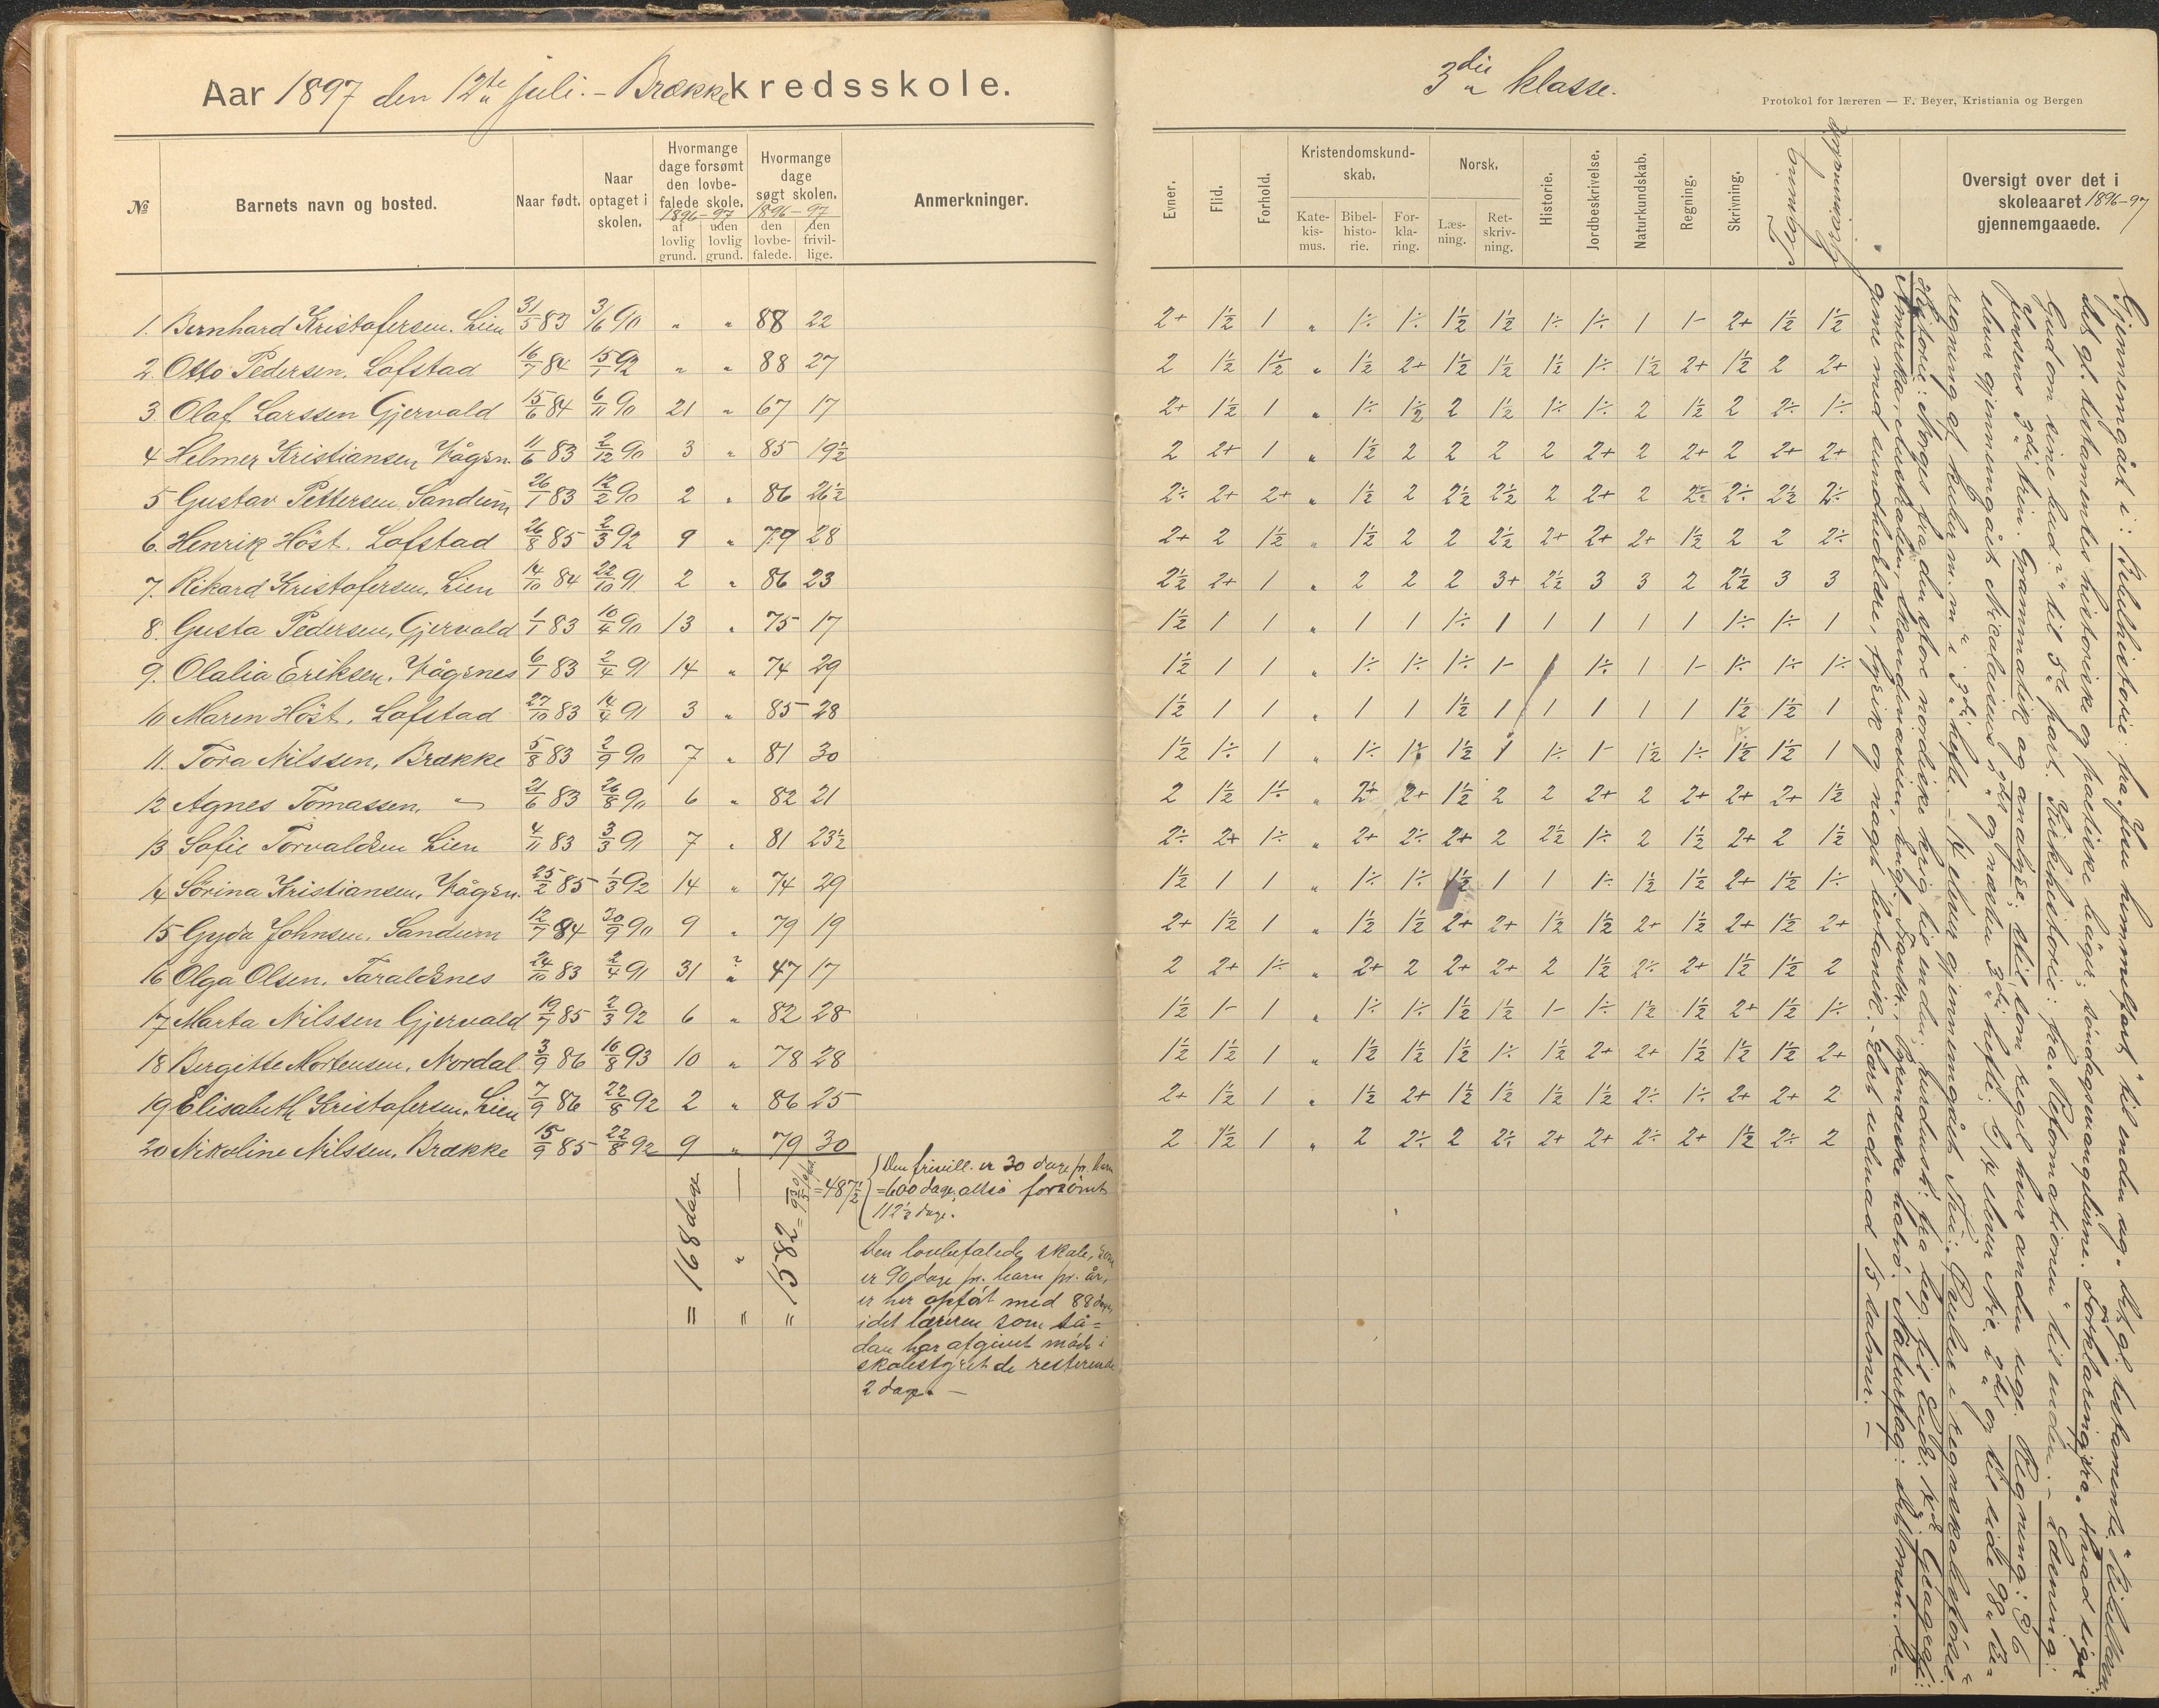 Aar 1897 den 12te juli. – Brække kredsskole.
№ Barnets navn og bosted. Naar født. Naar optaget i skolen. Hvormange dage forsømt den lovbefalede skole. 1896–97 af lovlig grund. uden lovlig grund. Hvormange dage søgt skolen. 1896–97 den lovbefalede. den frivillige. Anmerkninger.
1. Bernhard Kristofersen. Lien 31/5 83 3/6 90 " " 88 22
2. Otto Pedersen. Lofstad 16/7 84 15/1 92 " " 88 27
3. Olaf Larssen Gjervald 15/6 84 6/11 90 21 " 67 17
4 Helmer Kristiansen Vågsn. 11/6 83 2/12 90 3 " 85 19½
5 Gustav Pettersen Sandum 26/1 83 12/2 90 2 " 86 26½
6. Henrik Höst. Lofstad 26/8 85 2/3 92 9 " 79 28
7. Rikard Kristofersen. Lien 14/10 84 22/10 91 2 " 86 23
8. Gusta Pedersen, Gjervald 1/1 83 10/4 90 13 " 75 17
9. Olalia Eriksen. Vågsnes 6/1 83 2/4 91 14 " 74 29
10 Maren Höst. Lofstad 27/10 83 14/4 91 3 " 85 28
11. Tora Nilssen, Brække 5/8 83 2/9 90 7 " 81 30
12 Agnes Tomassen. " 21/6 83 26/8 90 6 " 82 21
13 Sofie Torvaldsen Lien 4/11 83 3/3 91 7 " 81 23½
14 Sörina Kristiansen, Vågsn. 25/2 85 1/3 92 14 " 74 29
15 Gyda Johnsen. Sandum 12/7 84 30/9 90 9 " 79 19
16 Olga Olsen. Taraldsnes 24/10 83 2/4 91 31 ? " 47 17
17 Marta Nilssen Gjervald 19/7 85 2/3 92 6 " 82 28
18 Bergitte Mortensen, Nordal. 3/9 86 16/8 93 10 " 78 28
19 Elisabeth Kristofersen. Lien 7/9 86 22/8 92 2 " 86 25
20 Nikoline Nilssen, Brække 15/9 85 22/8 92 9 " 79 30
= 168 dage
" "
= 1582
= 487½
Den frivill. er 30 dage pr. barn
= 600 dage, altså forsömt
112½ dage.
Den lovbefalede skole, som
er 90 dage pr. barn pr. år,
er her opfört med 88 dage,
idet læreren som så=
dan har afgivet möde i
skolestyret de resterende
2 dage. –
3die klasse.
Protokol for læreren — F. Beyer, Kristiania og Bergen
Evner. Flid. Forhold. Kristendomskundskab. Katekismus. Bibelhistorie. Forklaring. Norsk. Læsning. Retskrivning. Historie. Jordbeskrivelse. Naturkundskab. Regning. Skrivning. Tegning Oversigt over det i skoleaaret 1896–97 gjennemgaaede.
2+ 1½ 1 " 1÷ 1÷ 1½ 1½ 1÷ 1÷ 1 1- 2+ 1½ 1½
2 1½ 1½ " 1½ 2+ 1½ 1½ 1½ 1÷ 1½ 2+ 1½ 2 2+
2+ 1½ 1 " 1÷ 1½ 2 1½ 1÷ 1÷ 2 1½ 2 2÷ 1÷
2 2+ 1 " 1½ 2 2 2 2 2+ 2 2+ 2 2+ 2+
2÷ 2+ 2+ " 1½ 2 2½ 2½ 2 2+ 2 2÷ 2÷ 2½ 2÷
2+ 2 1½ " 1½ 2 2 2½ 2+ 2+ 2+ 1½ 2 2 2÷
2½ 2+ 1 " 2 2 2 3+ 2½ 3 3 2 2½ 3 3
1½ 1 1 " 1 1 1÷ 1 1 1 1 1 1÷ 1÷ 1
1½ 1 1 " 1÷ 1÷ 1÷ 1- 1 1÷ 1 1- 1÷ 1÷ 1÷
1½ 1 1 " 1 1 1½ 1 1 1 1 1 1½ 1½ 1
1½ 1÷ 1 " 1÷ 1÷ 1½ 1 1÷ 1- 1½ 1÷ 1½ 1½ 1
2 1½ 1÷ " 2+ 2+ 1½ 2 2 2+ 2 2+ 2+ 2+ 1½
2÷ 2+ 1÷ " 2+ 2÷ 2+ 2 2½ 1÷ 2 1½ 2+ 2 1½
1½ 1 1 " 1÷ 1÷ 1½ 1 1 1÷ 1½ 1½ 2+ 1½ 1÷
2+ 1½ 1 " 1½ 1½ 2+ 2+ 1½ 1½ 2+ 1½ 2+ 1½ 2+
2 2+ 1÷ " 2+ 2 2+ 2+ 2 1½ 2÷ 2+ 1½ 1½ 2
1½ 1- 1 " 1÷ 1÷ 1½ 1½ 1- 1÷ 1½ 1½ 2+ 1½ 1÷
1½ 1½ 1 " 1½ 1½ 1½ 1÷ 1½ 2+ 2+ 1½ 1½ 1½ 2+
2+ 1½ 1 " 1½ 2+ 1½ 1½ 1½ 1½ 2÷ 1÷ 2+ 2+ 2
2 1½ 1 " 2 2÷ 2 2÷ 2+ 2+ 2÷ 2+ 1½ 2÷ 2
Gjennemgået i: Bibelhistorie: fra "Jesu himmelfart" til enden og
det gl. testamentes historiske og poetiske bøger; söndagsevangelierne. Forklaring: fra "Hvad siger
Gud om sine bud" til 5te part. Kirkehistorie: fra "Reformationen" til enden. – Læsning:
Jensens 3die trin. Grammatik og analyse; stil som regel hver anden uge. Regning:
elever gjennemgået Nicolaisens 2det og næsten 3die hefte;
regning af kuber m.m. i 3die hefte. – 14 elever gjennemgået
Historie: Norges fra den store nordiske krig til enden;
Amerika, Australien, Skandinavien, Engl., Frankr.
gume med sundhedslære, fysik og noget botanik. – Lært udenad 15 salmer. –